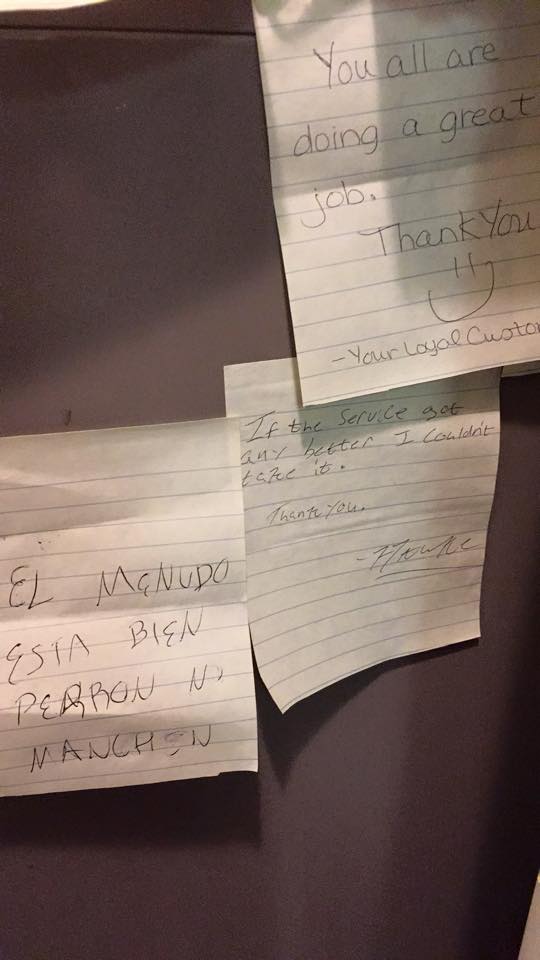 You all are
doing a great
job.
Thank You
-Your Loyal Custo
If the Service got
any better I Couldn't
take it.
Thank You.
EL MENUDO
ESTA BIEN
PERRON NO
MANCHEN